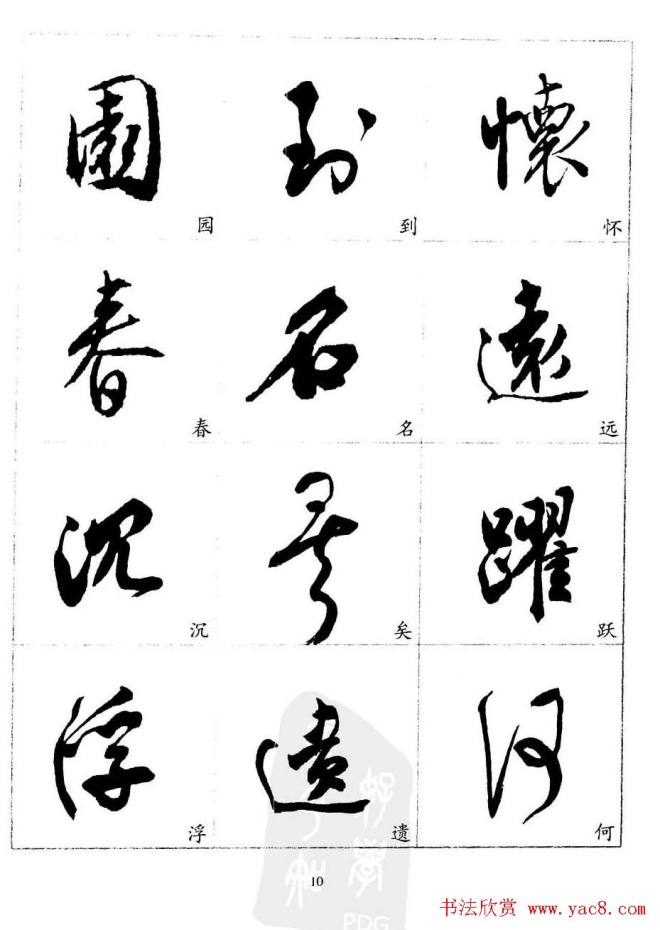 園 到 懷
园 到 怀
春 名 遠
春 名 远
沉 矣 躍
沉 矣 跃
浮 遺 何
浮 遗 何
10
好学
PDG
书法欣赏 www.yac8.com